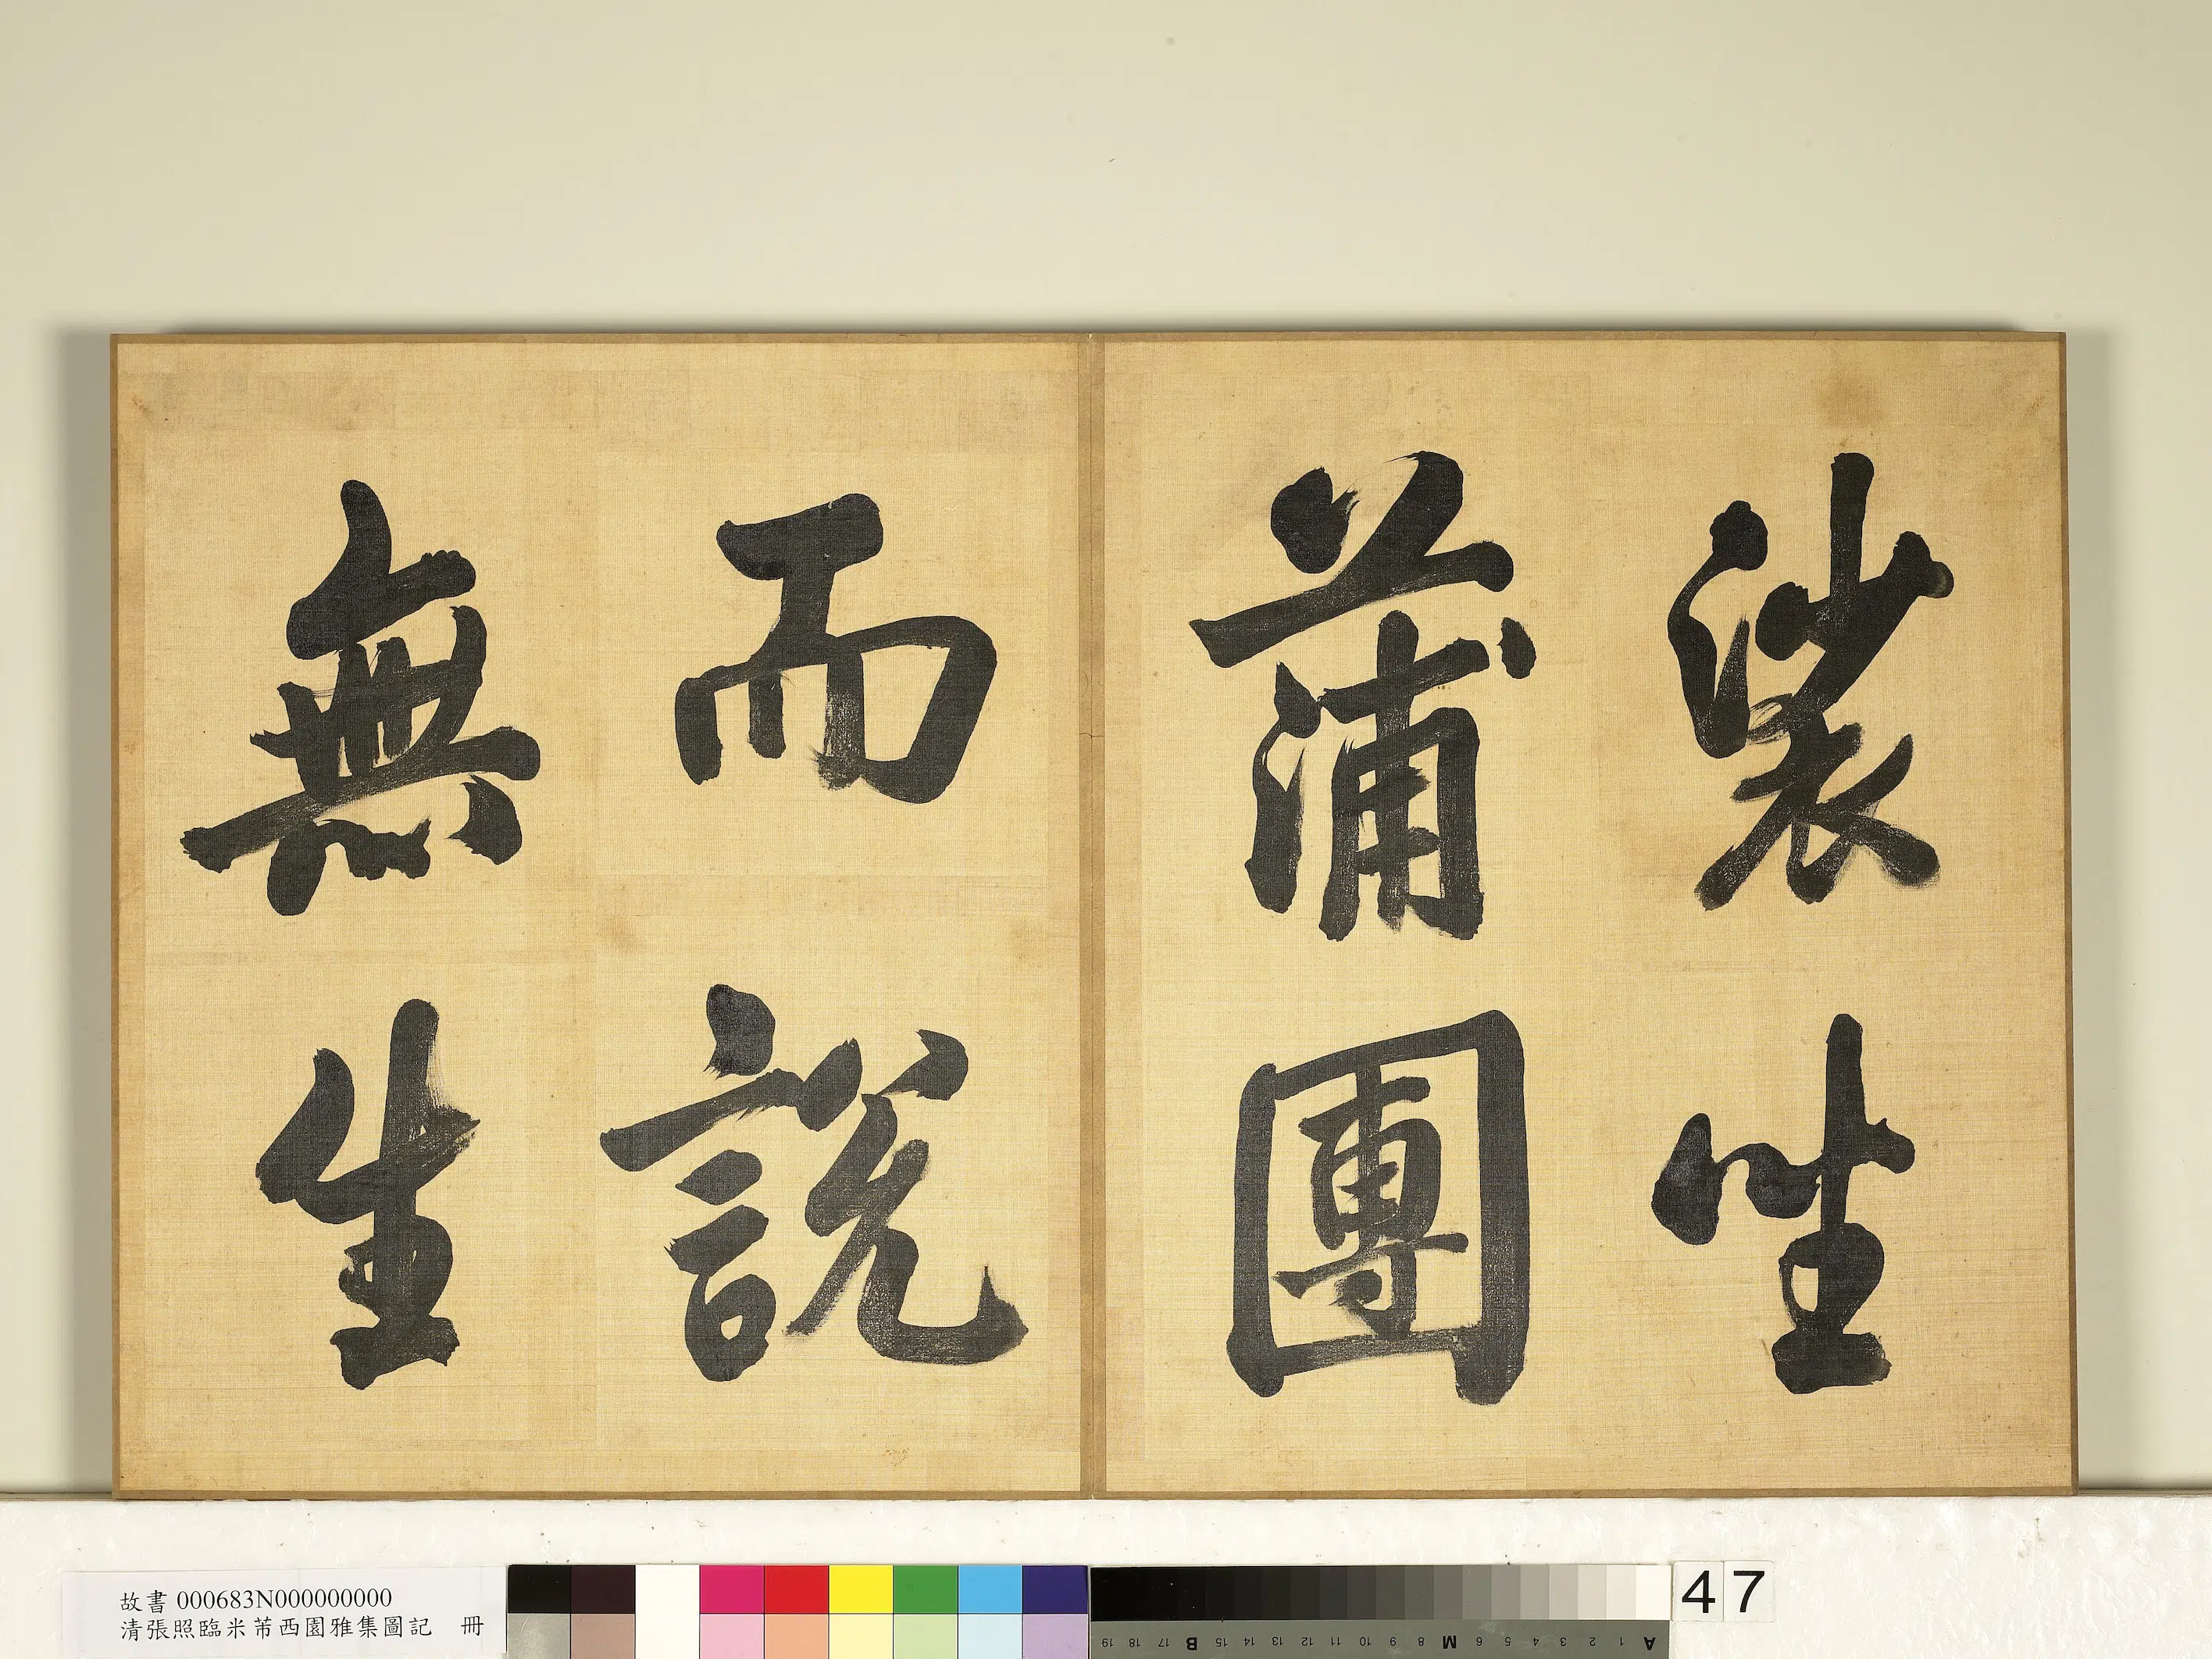 裟坐
蒲團
而說
無生
故書 000683N000000000
清張照臨米芾西園雅集圖記 冊
47
19 18 17 B 15 14 13 12 11 10 9 8 M 6 5 4 3 2 1 A